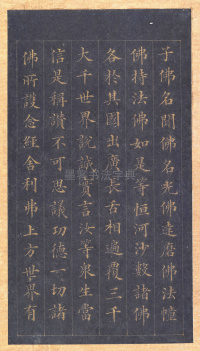 子佛名聞佛名光佛達磨佛法幢
佛持法佛如是等恒河沙數諸佛
各於其國出廣長舌相遍覆三千
大千世界說誠實言汝等眾生當
信是稱讚不可思議功德一切諸
佛所護念經舍利弗上方世界有